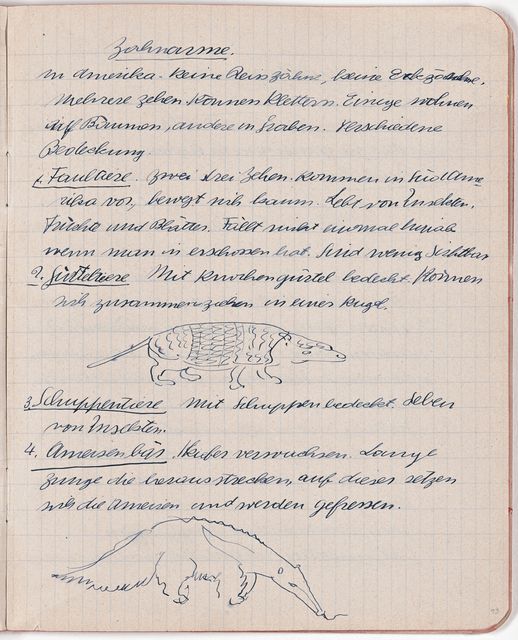 Zahnarme.
in Amerika. Keine Reisszähne, keine Eckzähne.
Mehrere Zehen können klettern. Einige wohnen
auf Bäumen, andere in Graben. Verschiedene
Bedeckung.
1. Faultiere. zwei drei Zehen. Kommen in Südame
rika vor, bewegt sich kaum. Lebt von Insekten,
Früchte und Blätter. Fällt nicht einmal hinab
wenn man in erschossen hat. Sind wenig sichtbar
2. Gürteltiere Mit Knochengürtel bedeckt. Können
sich zusammenziehen in einer Kugel.
3. Schuppentiere Mit Schuppen bedeckt. Leben
von Insekten.
4. Ameisenbär. verwachsen. Lange
Zunge die herausstrecken, auf dieser setzen
sich die Ameisen und werden gefressen.